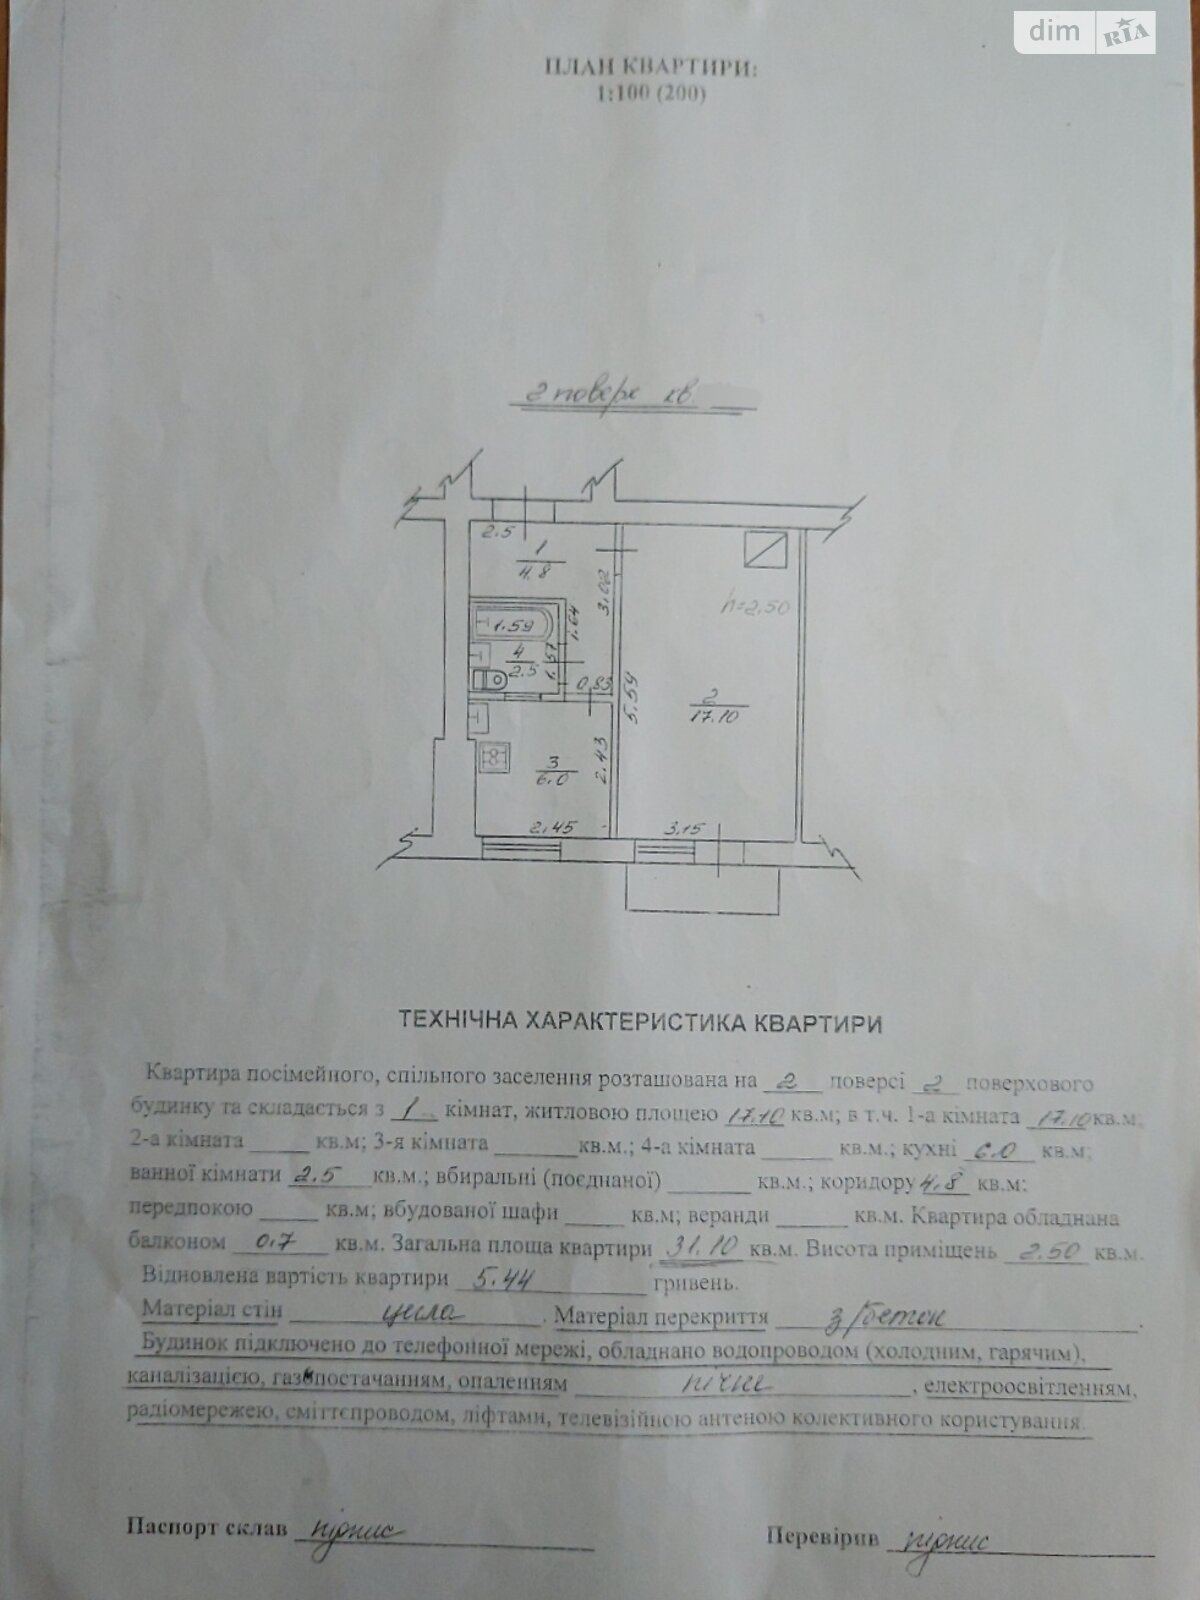 dim RIA
ПЛАН КВАРТИРИ:
1:100 (200)
2 поверх кв.
2.5
1
4.8
3.02
h=2.50
1.59
1.64
4
2.5
1.57
0.83
5.59
2
17.10
3
6.0
2.43
2.45
3.15
ТЕХНІЧНА ХАРАКТЕРИСТИКА КВАРТИРИ
Квартира посімейного, спільного заселення розташована на 2 поверсі 2 поверхового
будинку та складається з 1 кімнат, житловою площею 17.10 кв.м; в т.ч. 1-а кімната 17.10 кв.м;
2-а кімната ____ кв.м; 3-я кімната ____ кв.м.; 4-а кімната ____ кв.м.; кухні 6.0 кв.м;
ванної кімнати 2.5 кв.м.; вбиральні (поєднаної) ____ кв.м.; коридору 4.8 кв.м;
передпокою ____ кв.м; вбудованої шафи ____ кв.м; веранди ____ кв.м. Квартира обладнана
балконом 0.7 кв.м. Загальна площа квартири 31.10 кв.м. Висота приміщень 2.50 кв.м.
Відновлена вартість квартири 5.44 гривень.
Матеріал стін цегла. Матеріал перекриття з/бетон.
Будинок підключено до телефонної мережі, обладнано водопроводом (холодним, гарячим),
каналізацією, газопостачанням, опаленням пічне, електроосвітленням,
радіомережею, сміттєпроводом, ліфтами, телевізійною антеною колективного користування.
Паспорт склав підпис
Перевірив підпис